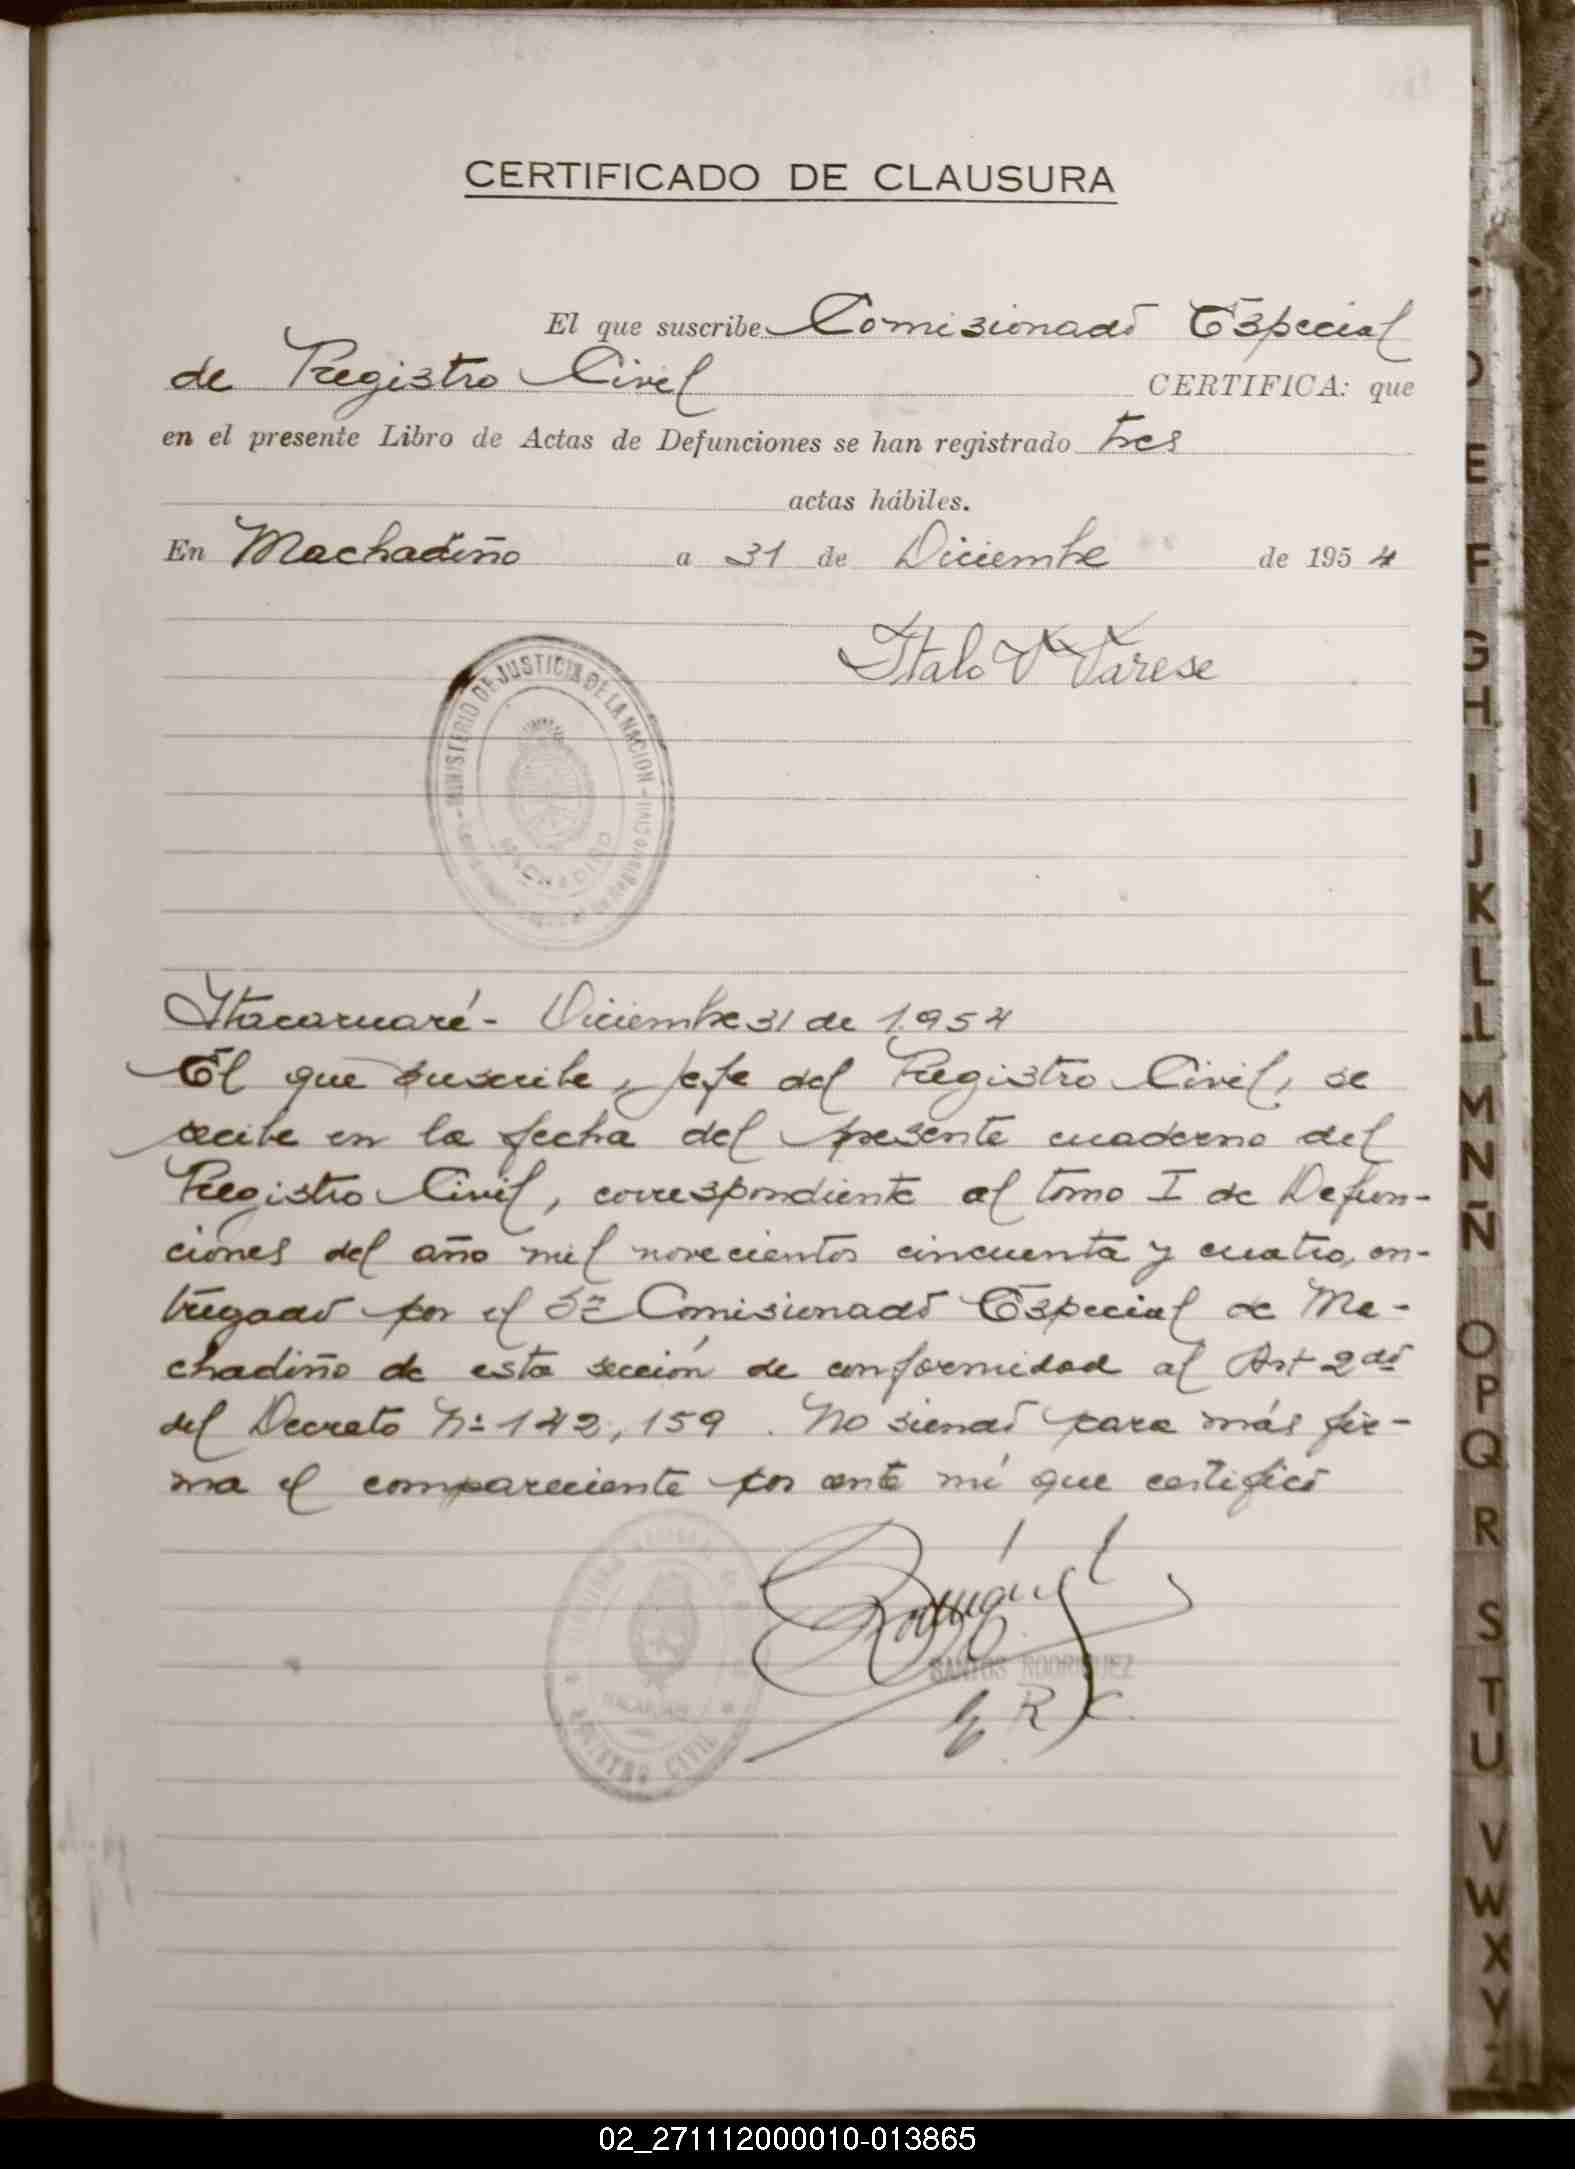 CERTIFICADO DE CLAUSURA
El que suscribe Comisionado Especial
de Registro Civil CERTIFICA: que
en el presente Libro de Actas de Defunciones se han registrado tres
actas hábiles.
En Machadiño a 31 de Diciembre de 1954
Italo V Varese
MINISTERIO DE JUSTICIA DE LA NACION
MACHADIÑO
Itacaruaré- Diciembre 31 de 1.954
El que suscribe, Jefe del Registro Civil, se
recibe en la fecha del presente cuaderno del
Registro Civil, correspondiente al tomo I de Defun-
ciones del año mil novecientos cincuenta y cuatro, en-
tregado por el Sr Comisionado Especial de Ma-
chadiño de esta sección de conformidad al Art 2do
del Decreto Nº 142,159. No siendo para más fir-
ma el compareciente por ante mí que certifico
SANTOS RODRIGUEZ
E.R.C.
REGISTRO CIVIL
E
F
G
H
I
J
K
L
LL
M
N
Ñ
O
P
Q
R
S
T
U
V
W
X
Y
Z
02_271112000010-013865